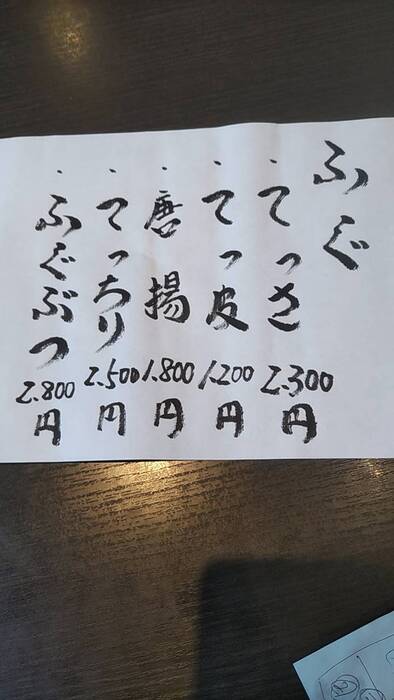 ふぐ
・てっさ 2.300円
・てっ皮 1.200円
・唐揚 1.800円
・てっちり 2.500円
・ふぐぶつ 2.800円